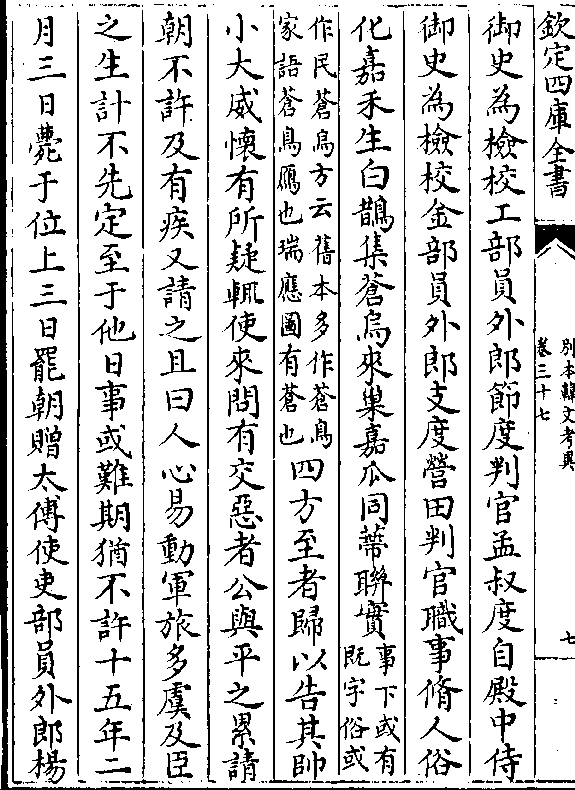 欽定四庫全書
別本韓文考異
卷三十七
七
御史為檢校工部員外郎節度判官孟叔度自殿中侍
御史為檢校金部員外郎支度營田判官職事脩人俗
化嘉禾生白鵲集蒼烏來巢嘉瓜同蔕聯實
事下或有
既字俗或
作民蒼烏方云舊本多作蒼鳥
家語蒼鳥鴈也瑞應圖有蒼也
四方至者歸以告其帥
小大威懷有所疑輒使來問有交惡者公與平之累請
朝不許及有疾又請之且曰人心易動軍旅多虞及臣
之生計不先定至于他日事或難期猶不許十五年二
月三日薨于位上三日罷朝贈太傅使吏部員外郎楊